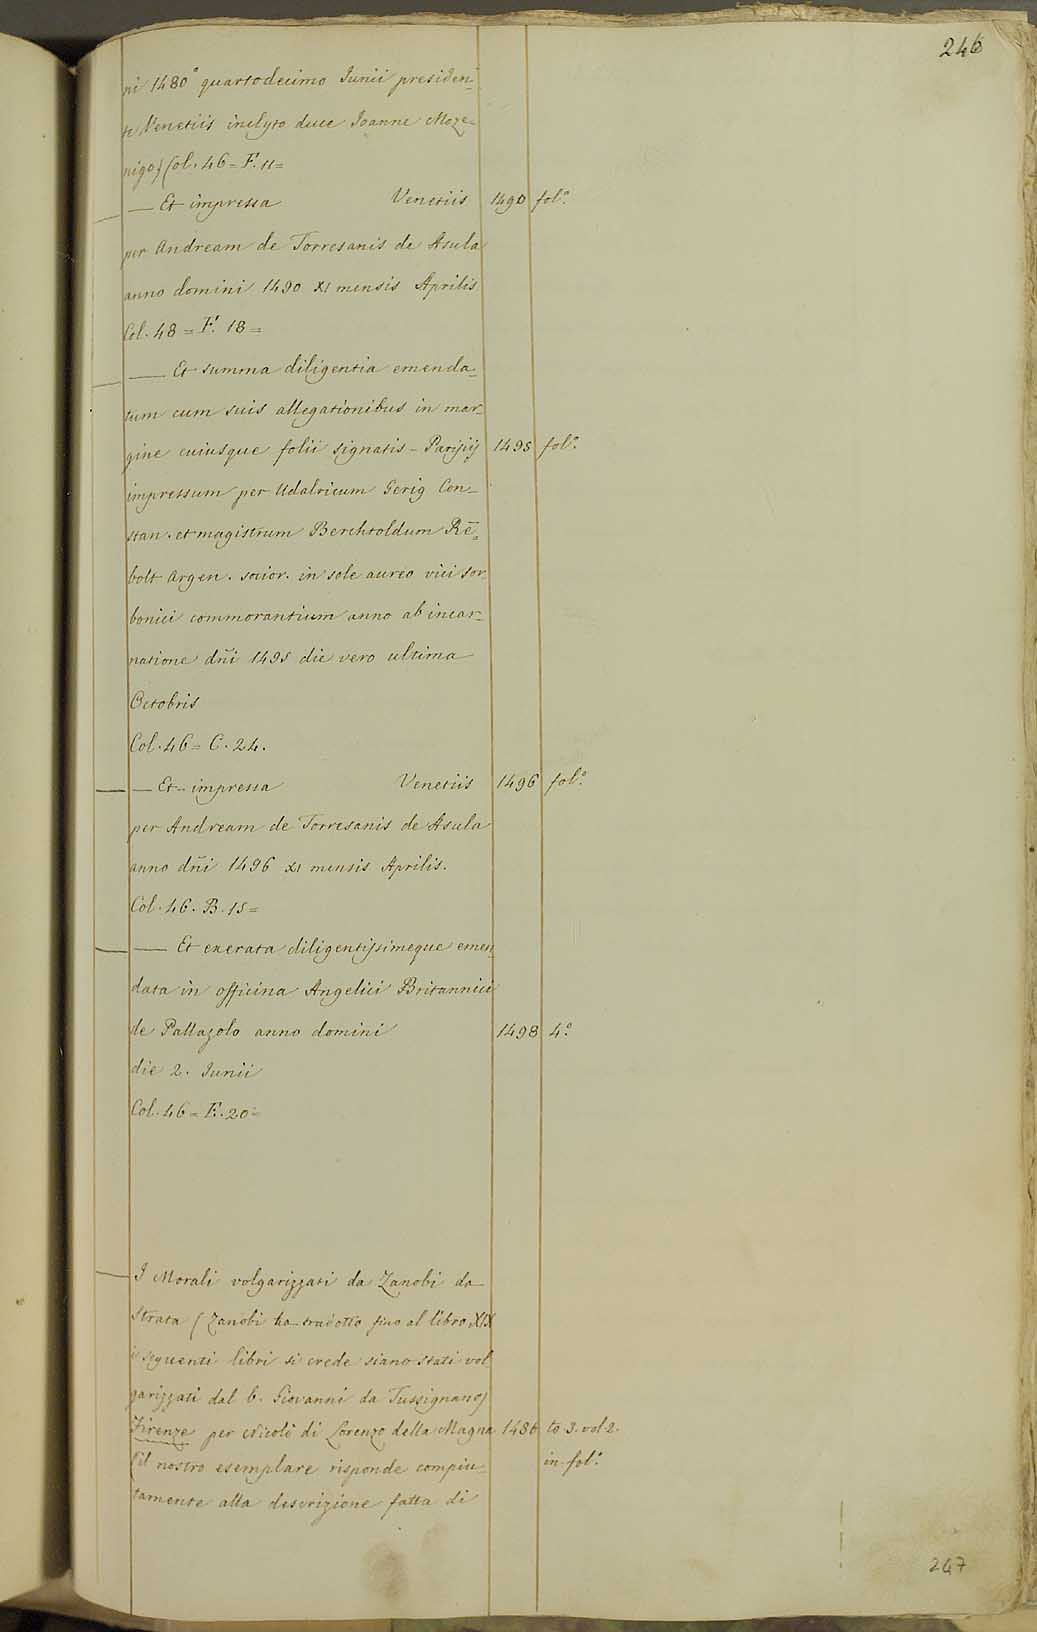 246
ni 1480° quartodecimo Junii presiden-
te Venetiis inclyto duce Joanne Moze-
nigo) Col. 46 = F. 11 =
— Et impressa Venetiis 1490 fol.°
per Andream de Torresanis de Asula
anno domini 1490 XI mensis Aprilis
Col. 48 = F. 18 =
— Et summa diligentia emenda-
tum cum suis allegationibus in mar-
gine cuiusque folii signatis - Parisijs 1495 fol.°
impressum per Udalricum Gerig Con-
stan. et magistrum Berchtoldum Rē-
bolt Argen. socior. in sole aureo vici sor-
bonici commorantium anno ab incar-
natione dñi 1495 die vero ultima
Octobris
Col. 46 = C. 24.
— Et impressa Venetiis 1496 fol.°
per Andream de Torresanis de Asula
anno dñi 1496 XI mensis Aprilis.
Col. 46. B. 15 =
— Et exerata diligentissimeque emen-
data in officina Angelici Britannici
de Pallazolo anno domini 1498 4.°
die 2. Junii
Col. 46 = F. 20 =
I Morali volgarizzati da Zanobi da
Strata (Zanobi ha tradotto fino al libro XIX
i seguenti libri si crede siano stati vol
garizzati dal b. Giovanni da Tussignano)
Firenze per Nicolò di Lorenzo della Magna 1486 to 3. vol 2.
(il nostro esemplare risponde compiu- in fol.°
tamente alla descrizione fatta di
247